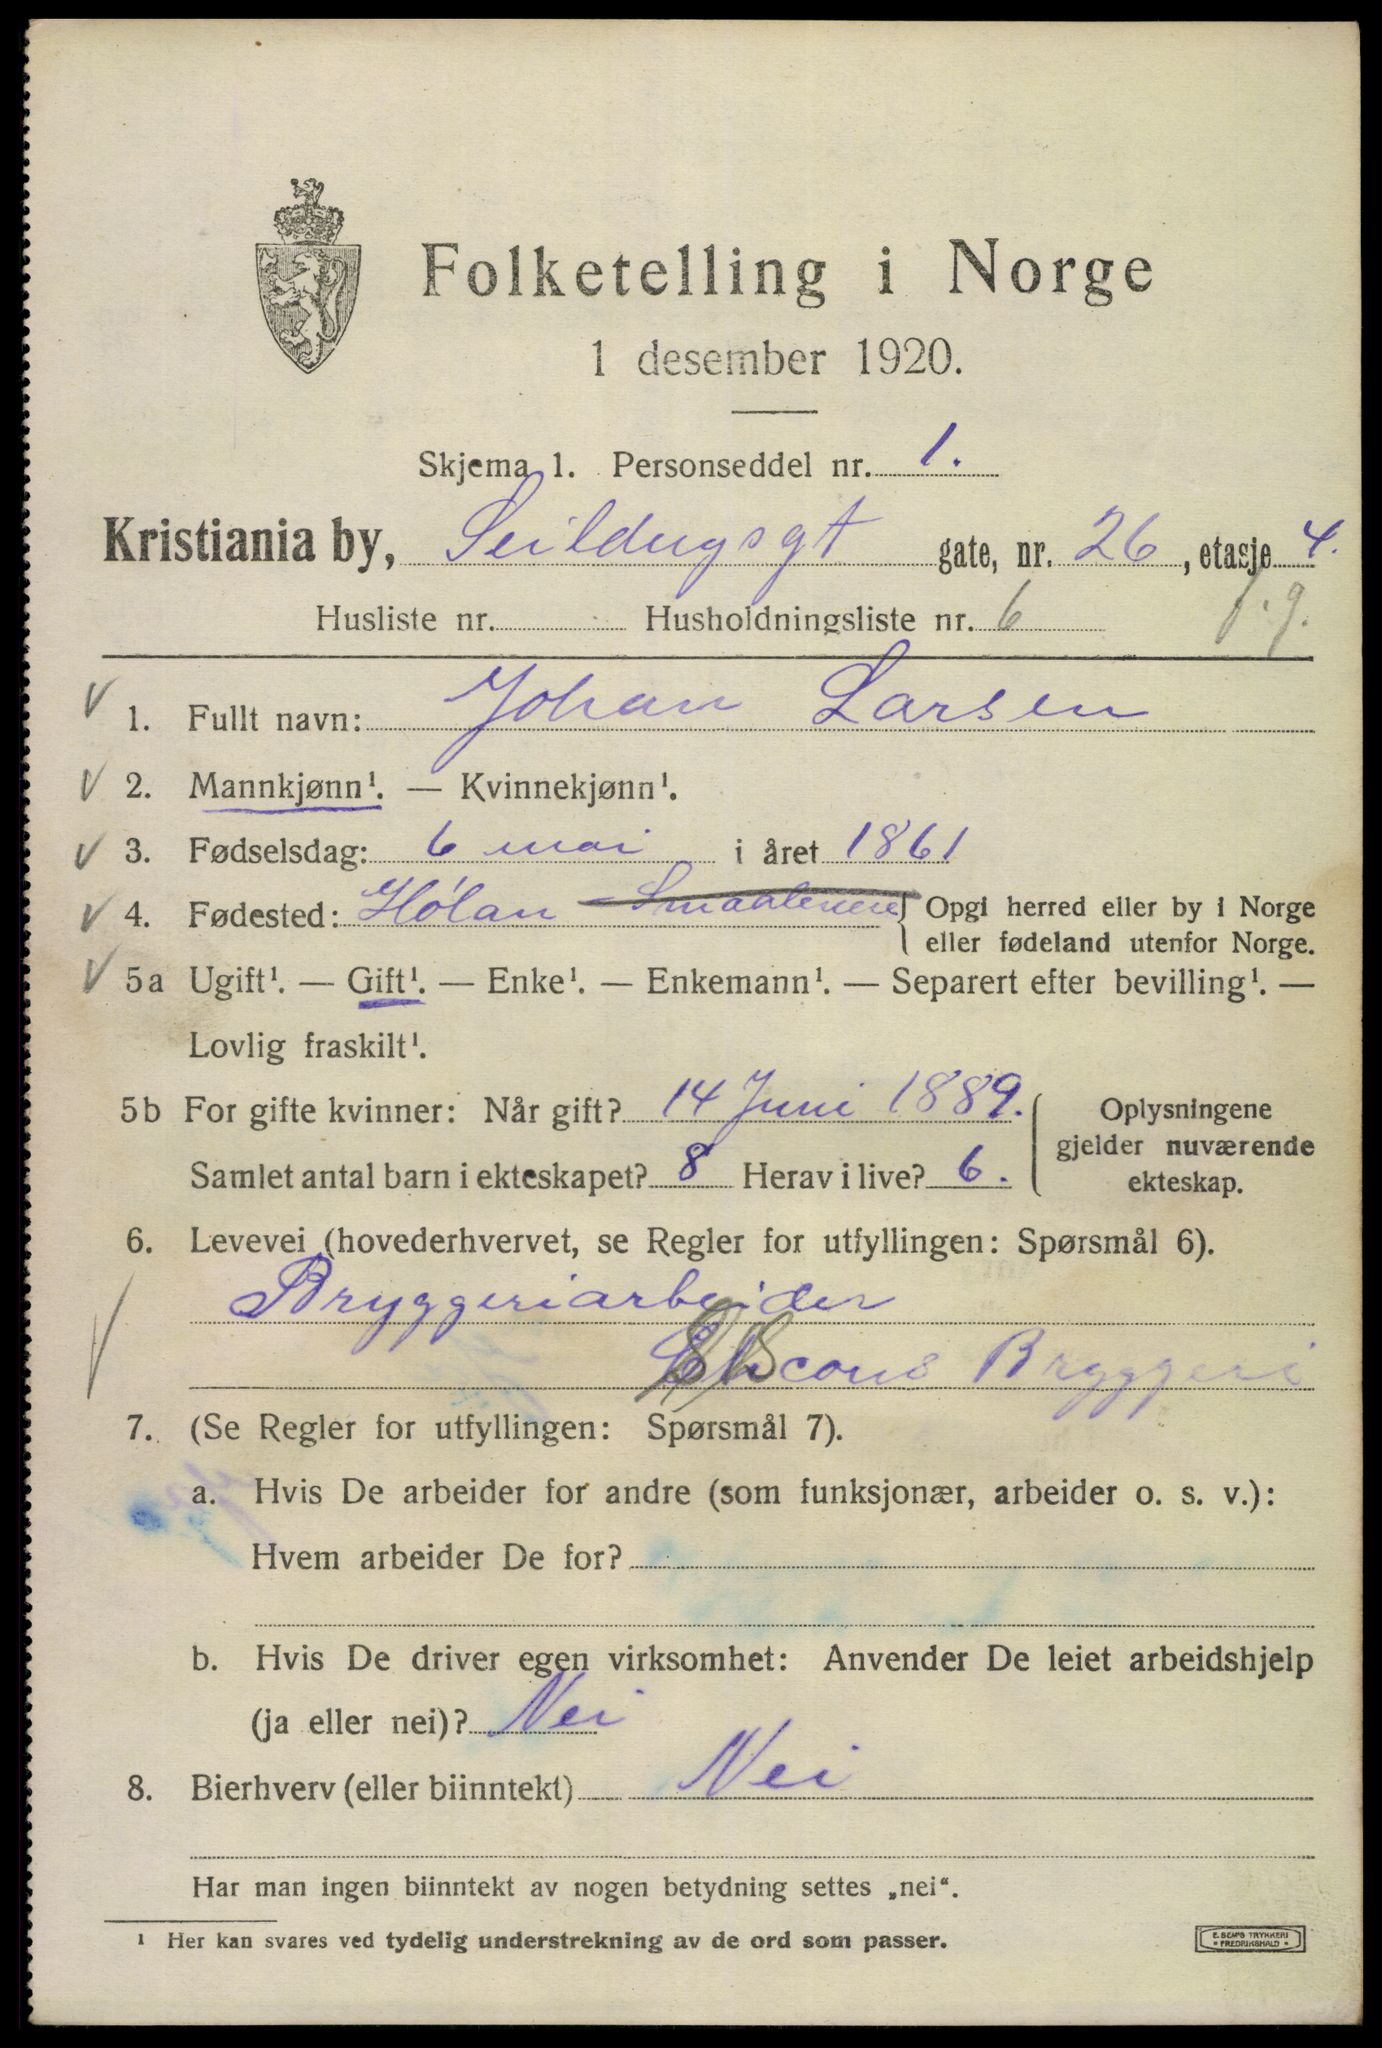 Folketelling i Norge
1 desember 1920.
Skjema 1. Personseddel nr. 1.
Kristiania by, Seildugsgt gate, nr. 26, etasje 4.
Husliste nr. Husholdningsliste nr. 6
1. Fullt navn: Johan Larsen
2. Mannkjønn¹. — Kvinnekjønn¹.
3. Fødselsdag: 6 mai i året 1861
4. Fødested: Hólan Smaalenene Opgi herred eller by i Norge
eller fødeland utenfor Norge.
5a Ugift¹. — Gift¹. — Enke¹. — Enkemann¹. — Separert efter bevilling¹. —
Lovlig fraskilt¹.
5b For gifte kvinner: Når gift? 14 Juni 1889. Oplysningene
gjelder nuværende
Samlet antal barn i ekteskapet? 8 Herav i live? 6. ekteskap.
6. Levevei (hovederhvervet, se Regler for utfyllingen: Spørsmål 6).
Bryggeriarbeider
Bryggeri
7. (Se Regler for utfyllingen: Spørsmål 7).
a. Hvis De arbeider for andre (som funksjonær, arbeider o. s. v.):
Hvem arbeider De for?
b. Hvis De driver egen virksomhet: Anvender De leiet arbeidshjelp
(ja eller nei)? Nei
8. Bierhverv (eller biinntekt) Nei
Har man ingen biinntekt av nogen betydning settes „nei“.
¹ Her kan svares ved tydelig understrekning av de ord som passer.
E. SEM'S TRYKKERI
• FREDRIKSHALD •